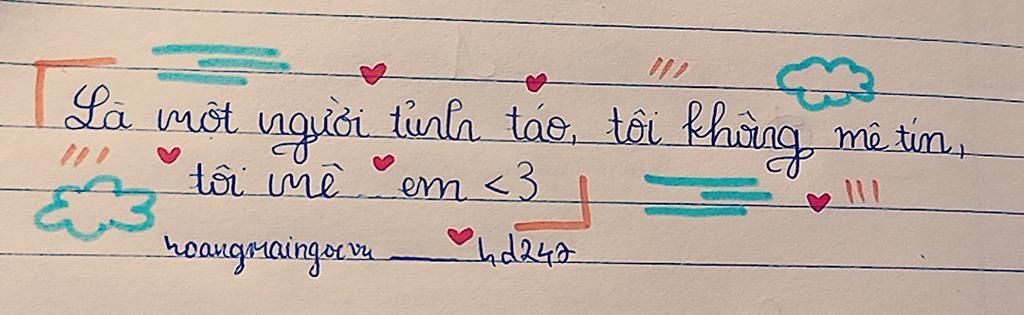 Là một người tỉnh táo, tôi không mê tín,
tôi mê em <3
hoangmaingocvu ___ hd247